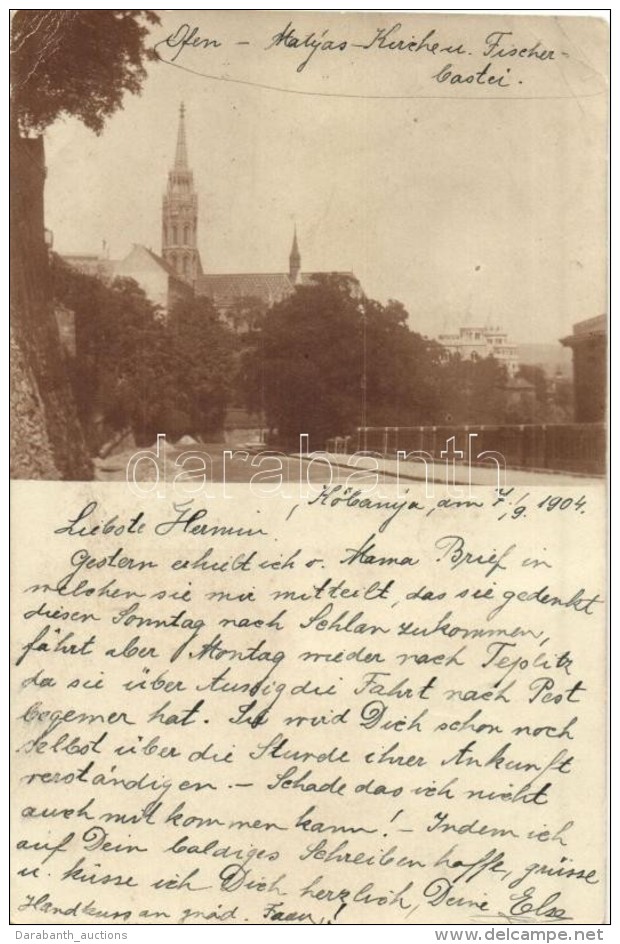 Ofen – Matyas-Kirche u. Fischer-
Bastei.
darabanth
Kőbanya, am 7./9. 1904.
Liebste Hermin!
Gestern erhielt ich v. Mama Brief in
welchen sie mir mitteilt, das sie gedenkt
diesen Sonntag nach Schlan zukommen,
fährt aber Montag wieder nach Teplitz
da sie über Aussig die Fahrt nach Pest
begemer hat. Sie wird Dich schon noch
selbst über die Stunde ihrer Ankunft
verständigen. – Schade das ich nicht
auch mit kommen kann! – Indem ich
auf Dein baldiges Schreiben hoffe, grüsse
u. küsse ich Dich herzlich, Deine Else
Handkuss an gnäd. !
Darabanth_auctions
www.delcampe.net